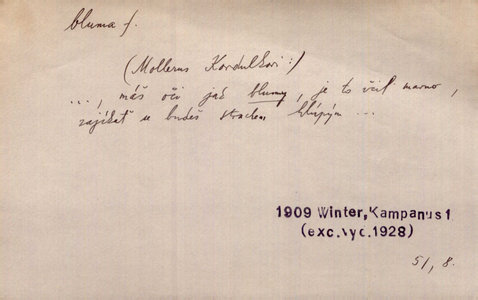 bluma f.
(Mollerus Kordulkovi:)
..., máš oči jak blumy, je to včil marno,
zajíkat se budeš strachem hlúpým ...
1909 Winter, Kampanus 1
(exc.vyc.1928)
51, 8.